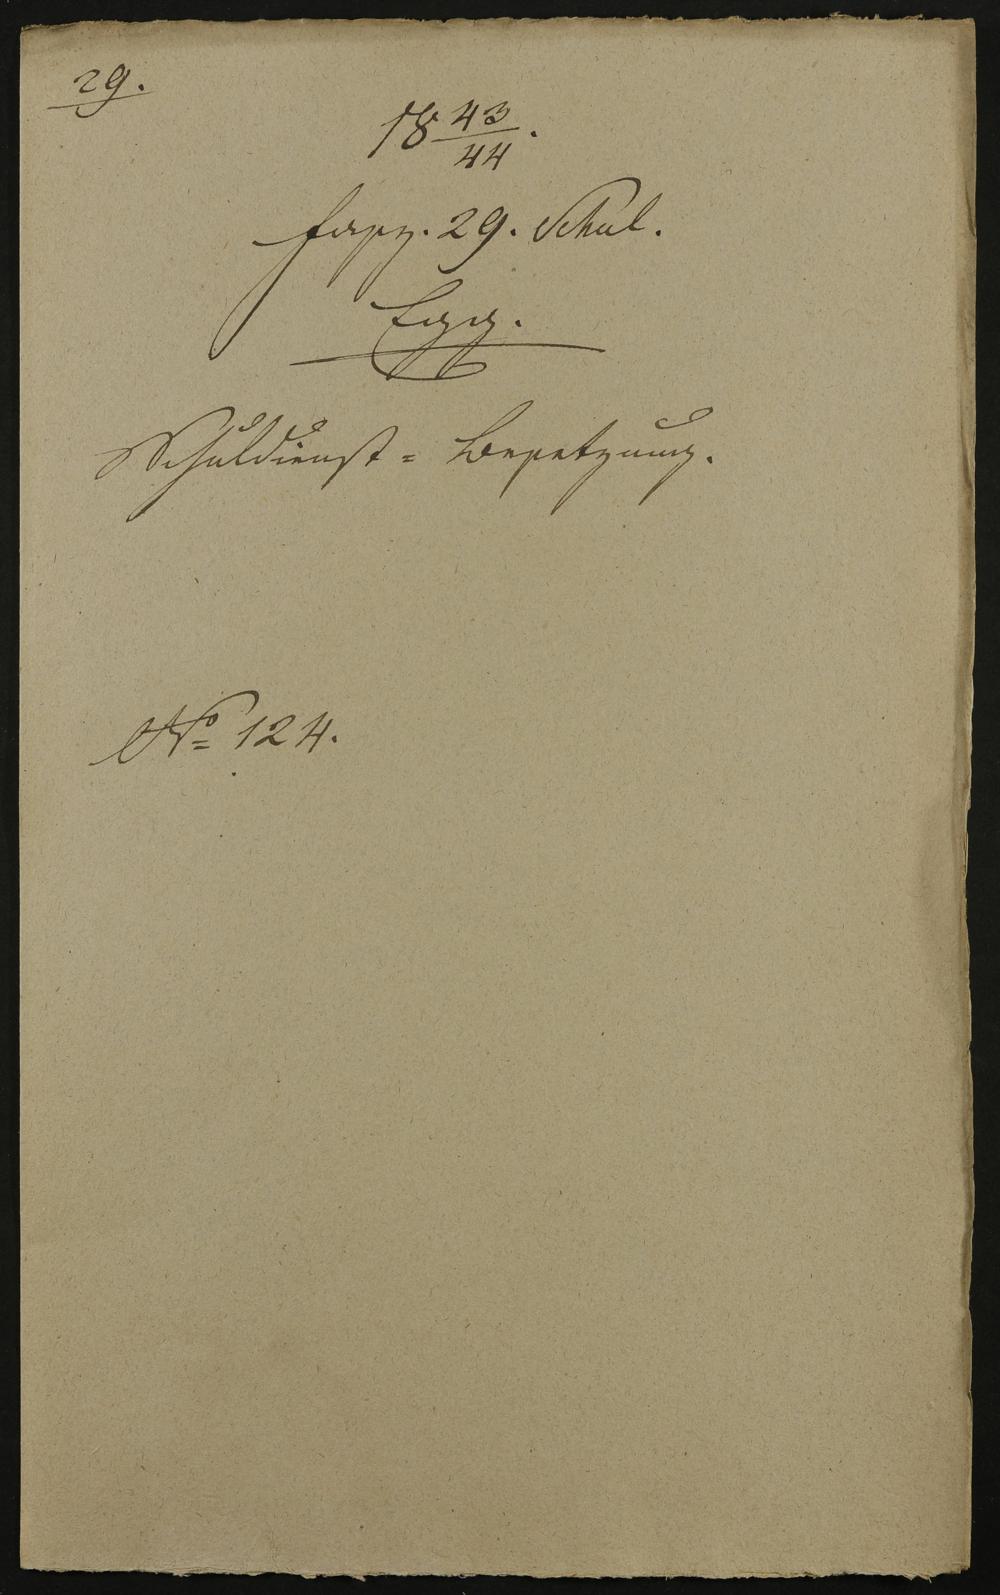 29.
18 43/44.
fasz. 29. Schul.
Egg.
Schuldienst = Besetzung.
No 124.